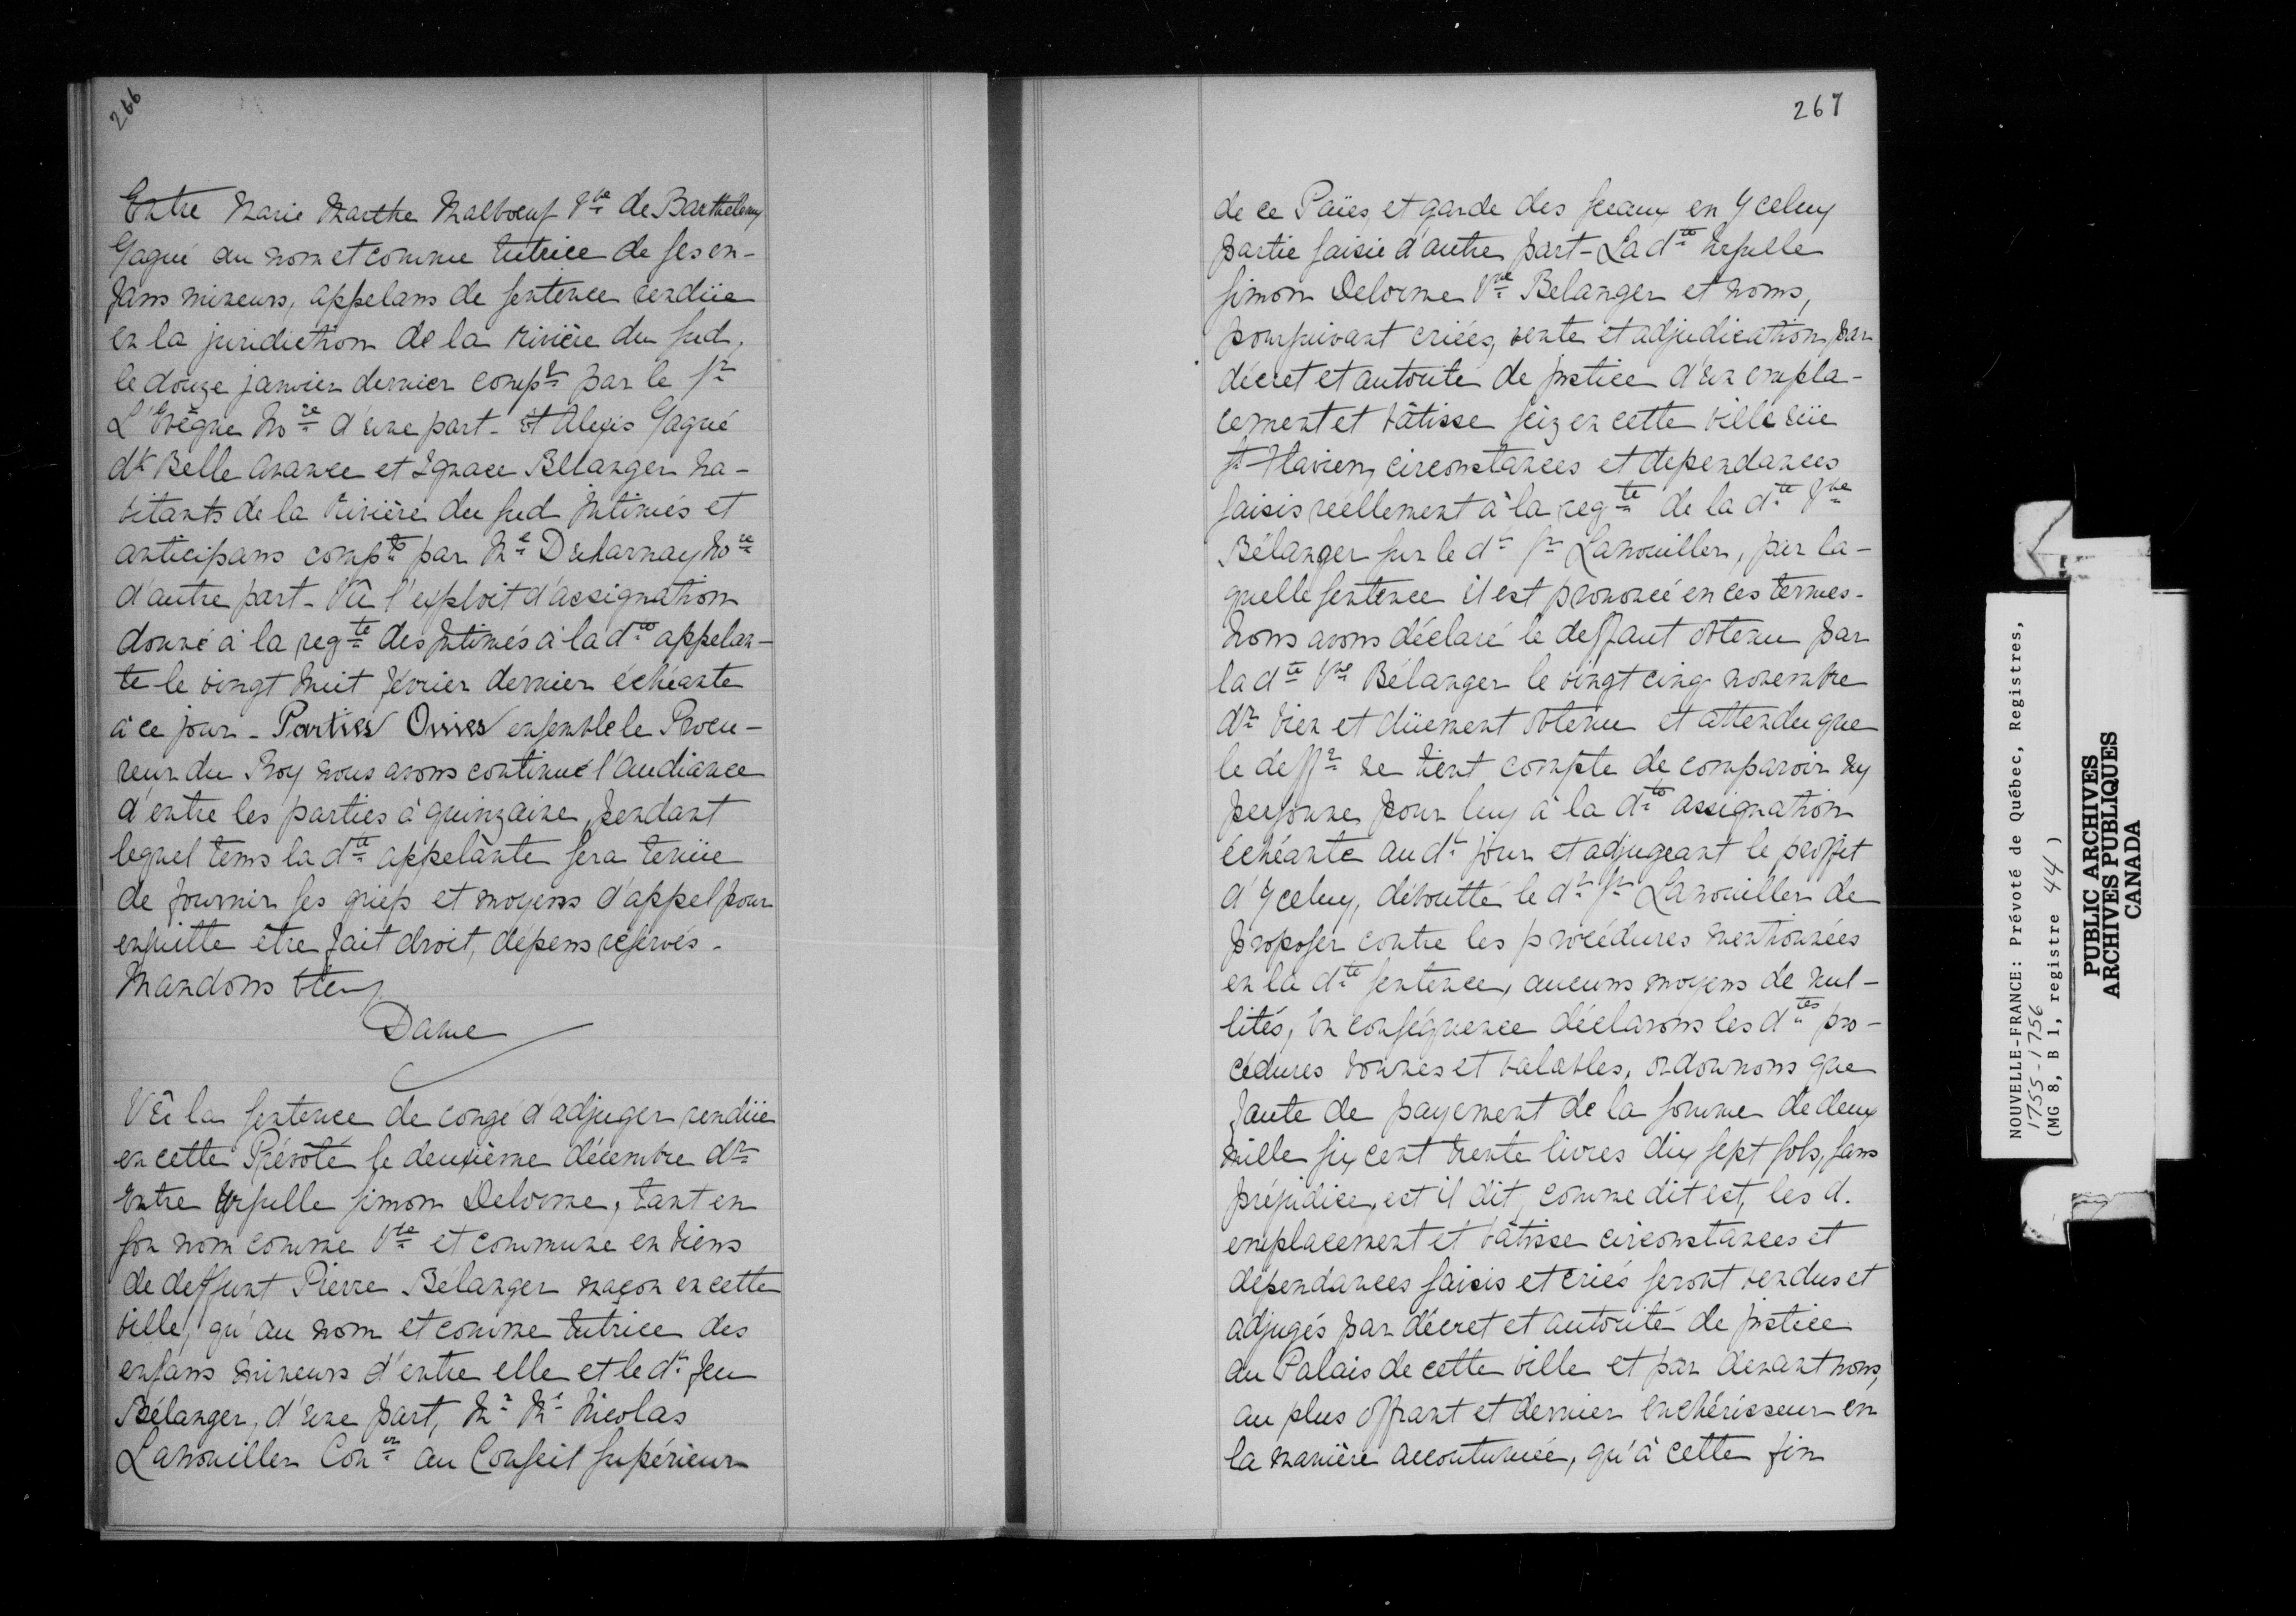 266
Entre Marie Marthe Malboeuf Vve de Barthélemy
Gagné au nom et comme tutrice de ses en-
fans mineurs, appelans de sentence rendüe
en la juridiction de la rivière du sud,
le douze janvier dernier compt par le sr
L'Evêque Nore d'une part - Et Alexis Gagné
dt Belle avance et Ignace Bélanger ha-
bitants de la rivière du sud Intimés et
anticipans compts par Me Decharnay Nore
d'autre part - Vû l'exploit d'assignation
donné à la reqte des Intimés à la dte appelan-
te le vingt huit février dernier échéante
à ce jour - Parties Ouies ensemble le Procu-
reur du Roy nous avons continué l'audiance
d'entre les parties à quinzaine, pendant
lequel tems la dte appelante sera tenüe
de fournir ses griefs et moyens d'appel pour
ensuitte être fait droit, dépens réservés -
Mandons &tc
Daine
Vû la sentence de congé d'adjuger rendüe
en cette Prévôté le deuxième décembre dr
Entre Ursulle Simon Delorme, tant en
son nom comme Vve et commune en biens
de deffunt Pierre Bélanger maçon en cette
ville, qu'au nom et comme tutrice des
enfans mineurs d'entre elle et le dt feu
Bélanger, d'une part, Mr Me Nicolas
Lanouiller Coner au Conseil Supérieur
267
de ce Païes, et garde des sceaux en Yceluy
partie saisie d'autre part - La dte Ursulle
Simon Delorme Vve Belanger et noms,
poursuivant criées, vente et adjudication, par
décret et autorité de justice d'un empla-
cement et bâtisse seiz en cette ville rüe
St Flavien, circonstances et dependances
saisis réellement à la reqte de la dte Vve
Bélanger sur le dt sr Lanouiller, par la-
quelle sentence il est prononcé en ces termes -
Nous avons déclaré le deffaut obtenu par
la dte Vve Bélanger le vingt cinq novembre
dr bien et düement obtenu et attendu que
le deffr ne tient compte de comparoir ny
personne pour luy à la dte assignation
échéante au dt jour et adjugeant le proffit
d'Yceluy, déboutté le dt sr Lanouiller de
proposer contre les procédures mentionnées
en la dte sentence, aucuns moyens de nul-
lités, En conséquence déclarons les dtes pro-
cédures bonnes et valables, ordonnons que
faute de payement de la somme de deux
mille six cent trente livres dix sept sols, sans
préjudice, est il dit, comme dit est, les d.
emplacement et bâtisse circonstances et
dépendances saisis et criés seront vendus et
adjugés par décret et autorité de justice
au Palais de cette ville et par devant nous,
au plus offrant et dernier enchérisseur en
la manière accoutumée, qu'à cette fin
NOUVELLE-FRANCE: Prévoté de Québec, Registres,
1755-1756
(MG 8, B 1, registre 44)
PUBLIC ARCHIVES
ARCHIVES PUBLIQUES
CANADA